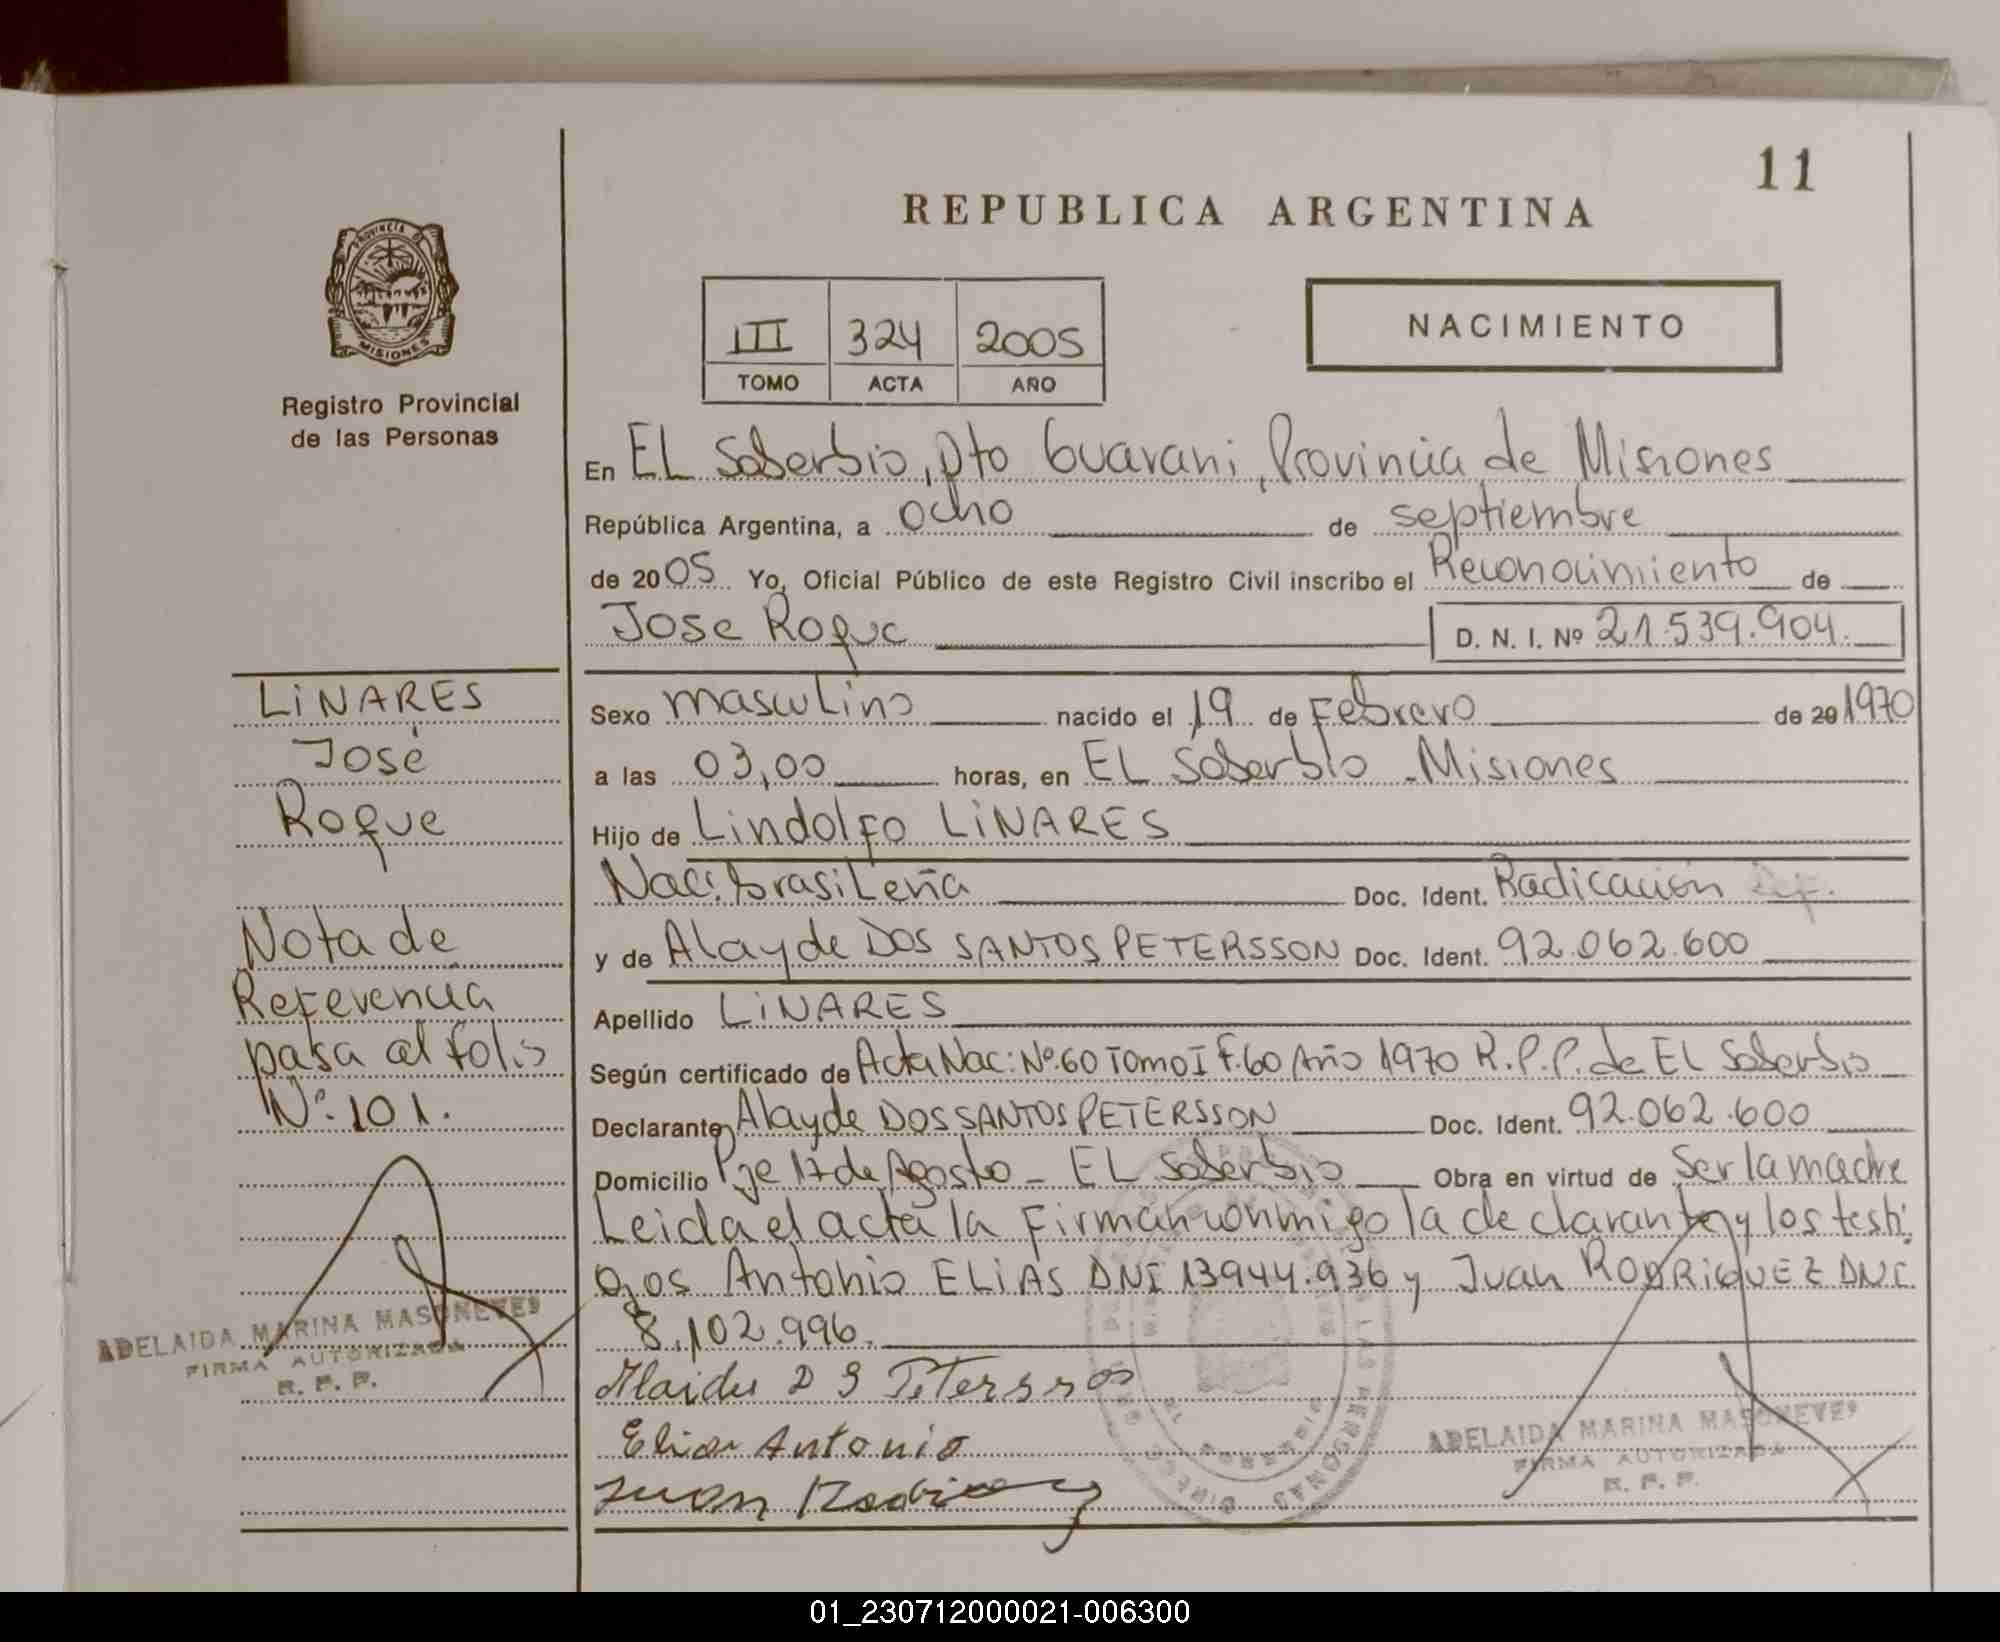 11
REPUBLICA ARGENTINA
PROVINCIA DE
MISIONES
Registro Provincial
de las Personas
III 324 2005
TOMO ACTA AÑO
NACIMIENTO
En EL Soberbio, Dto Guarani, Provincia de Misiones
República Argentina, a ocho de septiembre
de 2005 Yo, Oficial Público de este Registro Civil inscribo el Reconocimiento de
Jose Roque D. N. I. Nº 21.539.904.
LINARES
José
Roque
Nota de
Referencia
pasa al folio
Nº 101.
ADELAIDA MARINA MASONEVES
FIRMA AUTORIZADA
R. P. P.
Sexo masculino nacido el 19 de Febrero de 20 1970
a las 03,00 horas, en EL Soberbio - Misiones
Hijo de Lindolfo LINARES
Nac: brasileña Doc. Ident. Radicación
y de Alayde DOS SANTOS PETERSSON Doc. Ident. 92.062.600
Apellido LINARES
Según certificado de Acta Nac: Nº 60 Tomo I F. 60 Año 1970 R.P.P. de EL Soberbio
Declarante Alayde DOS SANTOS PETERSSON Doc. Ident. 92.062.600
Domicilio Pje 17 de Agosto - EL Soberbio Obra en virtud de Ser la madre
Leida el acta la Firman conmigo la declarante y los testi
gos Antonio ELIAS DNI 13944.936 y Juan RODRIGUEZ DNI
8.102.996.
Elias Antonio
Juan
ADELAIDA MARINA MASONEVES
FIRMA AUTORIZADA
R. P. P.
01_230712000021-006300